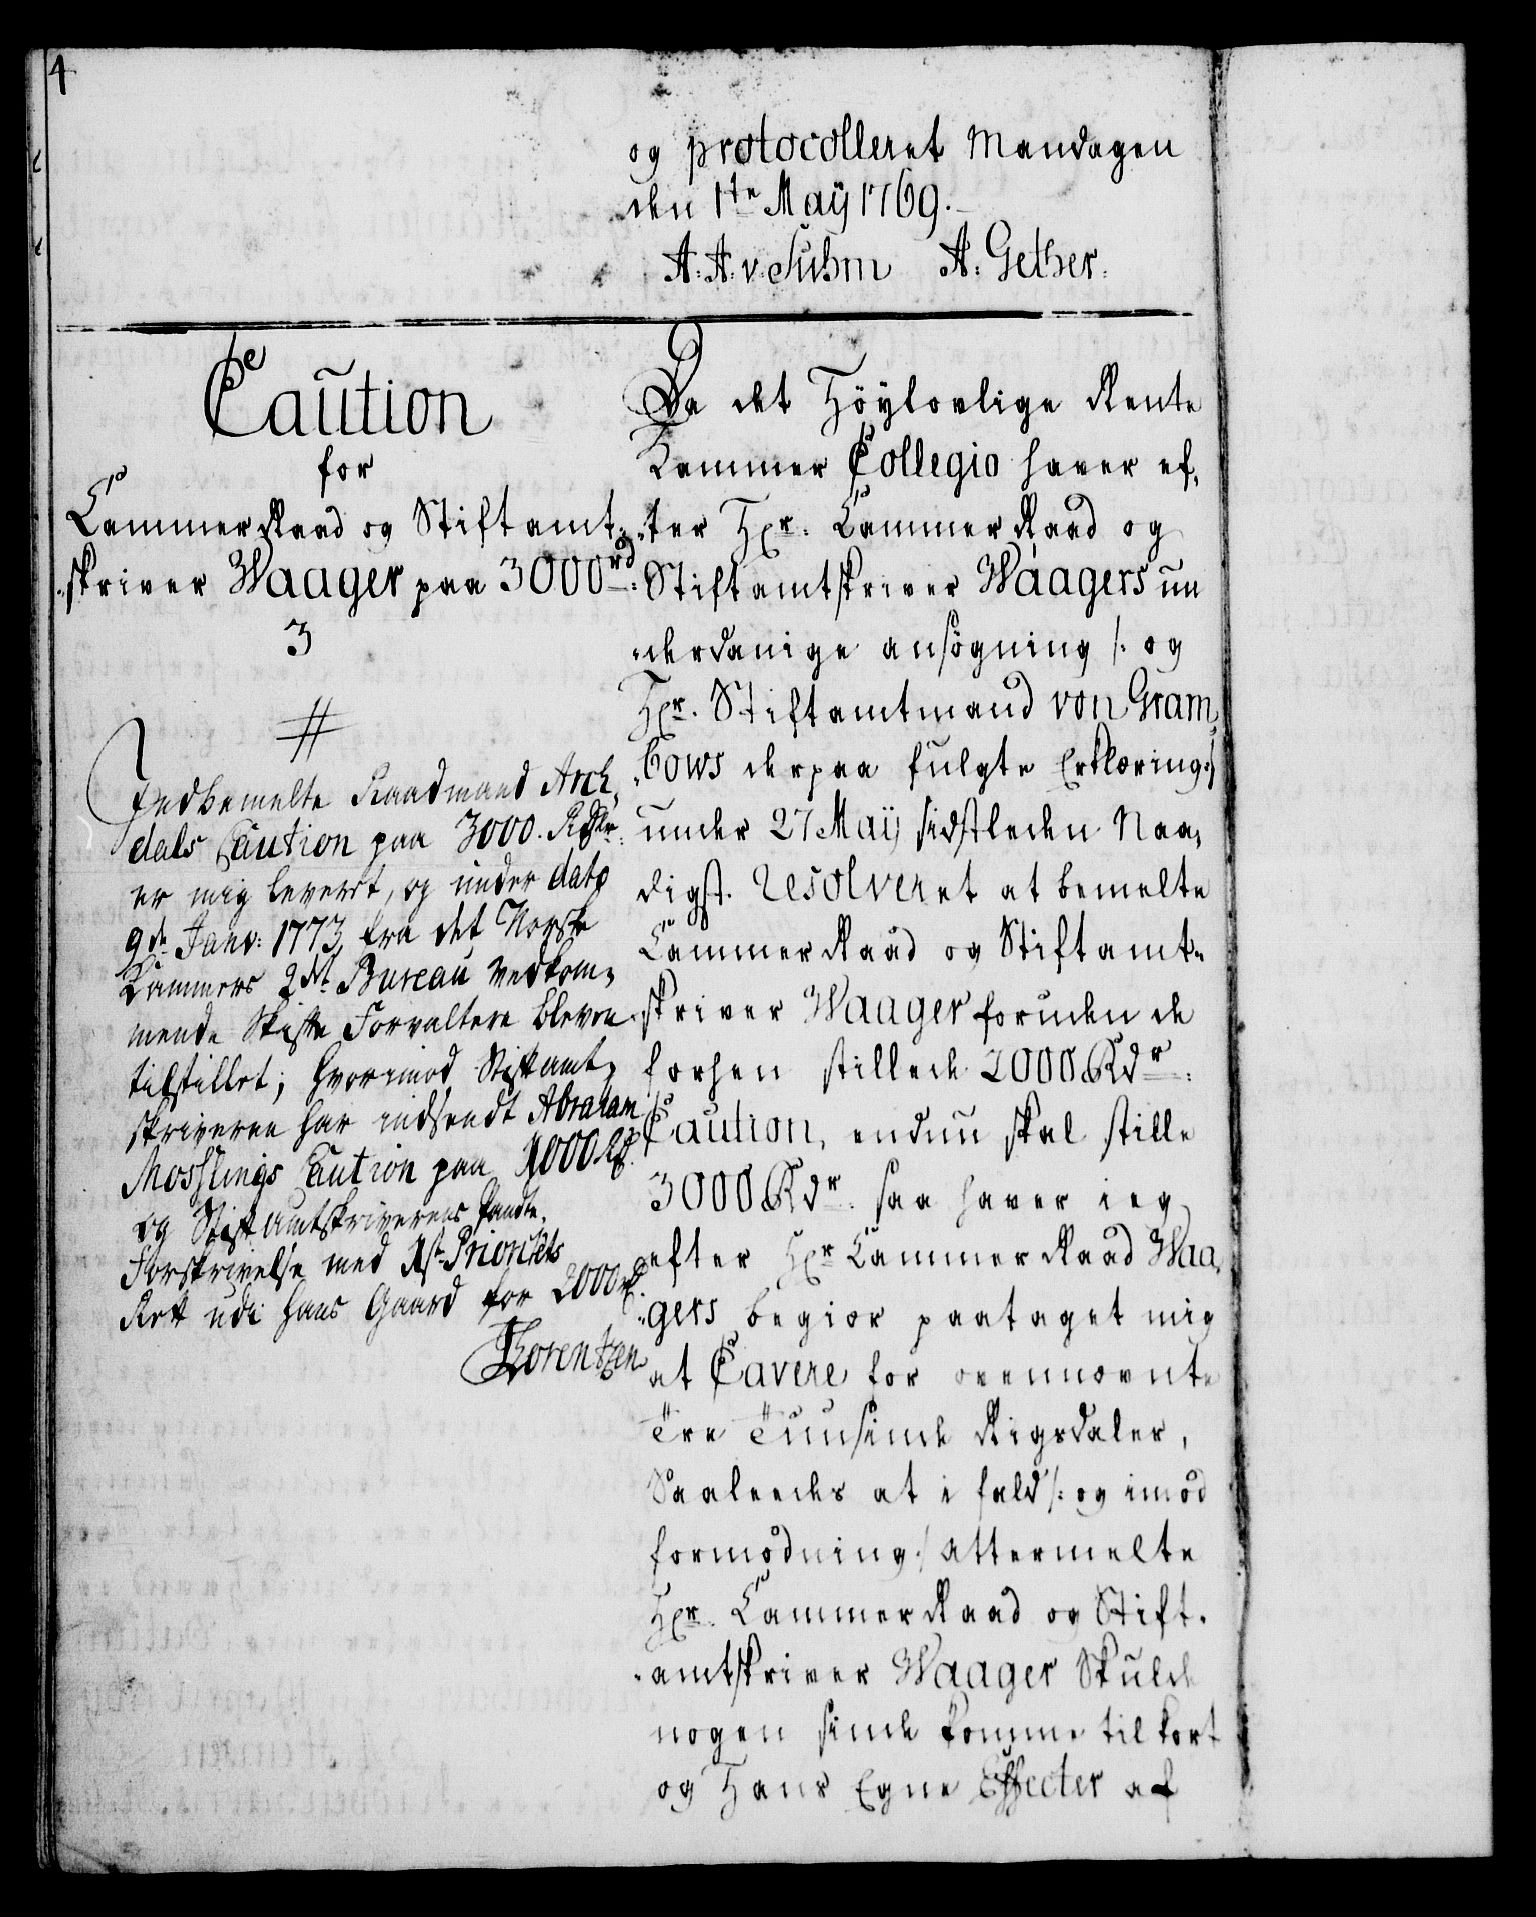 4
og protocolleret Mandagen
den 1te Maÿ 1769.
A. A. v. Suhm A: Gether.
Caution
for
Cammer Raad og Stiftamt-
skriver Waager paa 3000rd
3
#
Indbemelte Raadmand Arch-
dals Caution paa 3000. Rdlr.
er mig leveret, og under dato
9de Janv: 1773 fra det Norske
Kammers 2det Bureau vedkom-
mende Skifte Forvaltere bleven
tilstillet; hvorimod Stiftamt-
skriveren har indsendt Abraham
Mosslings Caution paa 1000 Rd.
og Stiftamtskriverens Pandte-
Forskrivelse med 1ste Prioritets
Ret udi hans Gaard for 2000 rd.
Lorentzen
Da det Höylovlige Rente
Kammer Collegio haver ef-
ter Hr. Cammer Raad og
Stiftamtskriver Waagers un
derdanige ansøgning /: og
Hr. Stiftamtmand von Gram-
bows derpaa fulgte Erklæring :/
under 27 Maÿ sidstleden Naa-
digst resolveret at bemelte
Cammer Raad og Stiftamt-
skriver Waager foruden de
forhen stillede 2000 Rdr.
Caution, endnu skal stille
3000 Rdr. saa haver ieg
efter Hr Cammer Raad Waa-
gers begiær paataget mig
at Cavere for ovennævnte
Tre Tuusinde Rigsdaler,
Saaleedes at i fald /: og imod
formodning :/ attermelte
Hr. Cammer Raad og Stift-
amtskriver Waager Skulde
nogen sinde komme til kort
og Hans Egne Effecter af